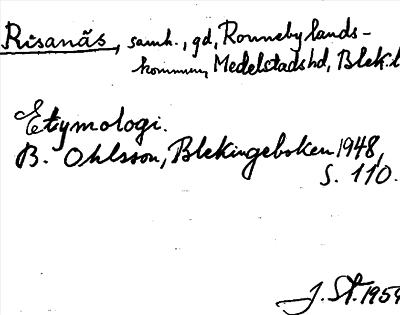 Risanäs, samh., gd, Ronneby lands-
kommun, Medelstads hd, Blek. l
Etymologi.
B. Ohlsson, Blekingeboken 1948,
S. 110.
J. St. 1954